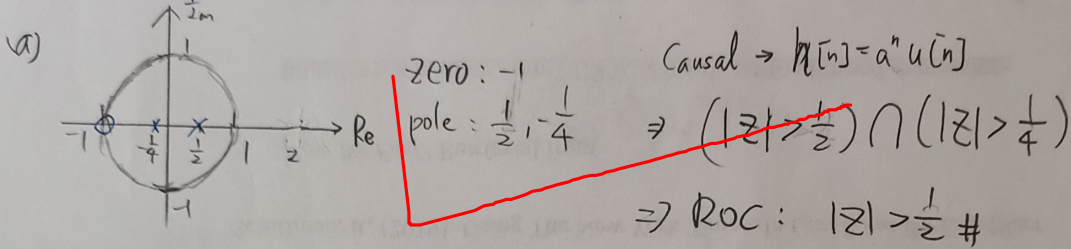 (a)
Im
1
-1
-1/4
1/2
1
2
Re
-1
zero: -1
pole: 1/2, -1/4
Causal → h[n] = aⁿ u[n]
⇒ (|z| > 1/2) ∩ (|z| > 1/4)
⇒ ROC: |z| > 1/2 #